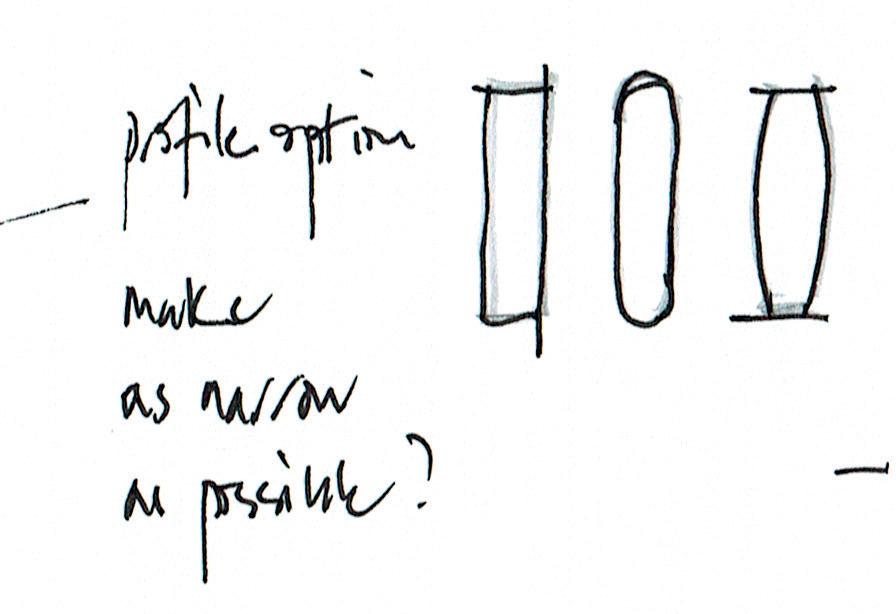 profile option
make
as narrow
as possible?